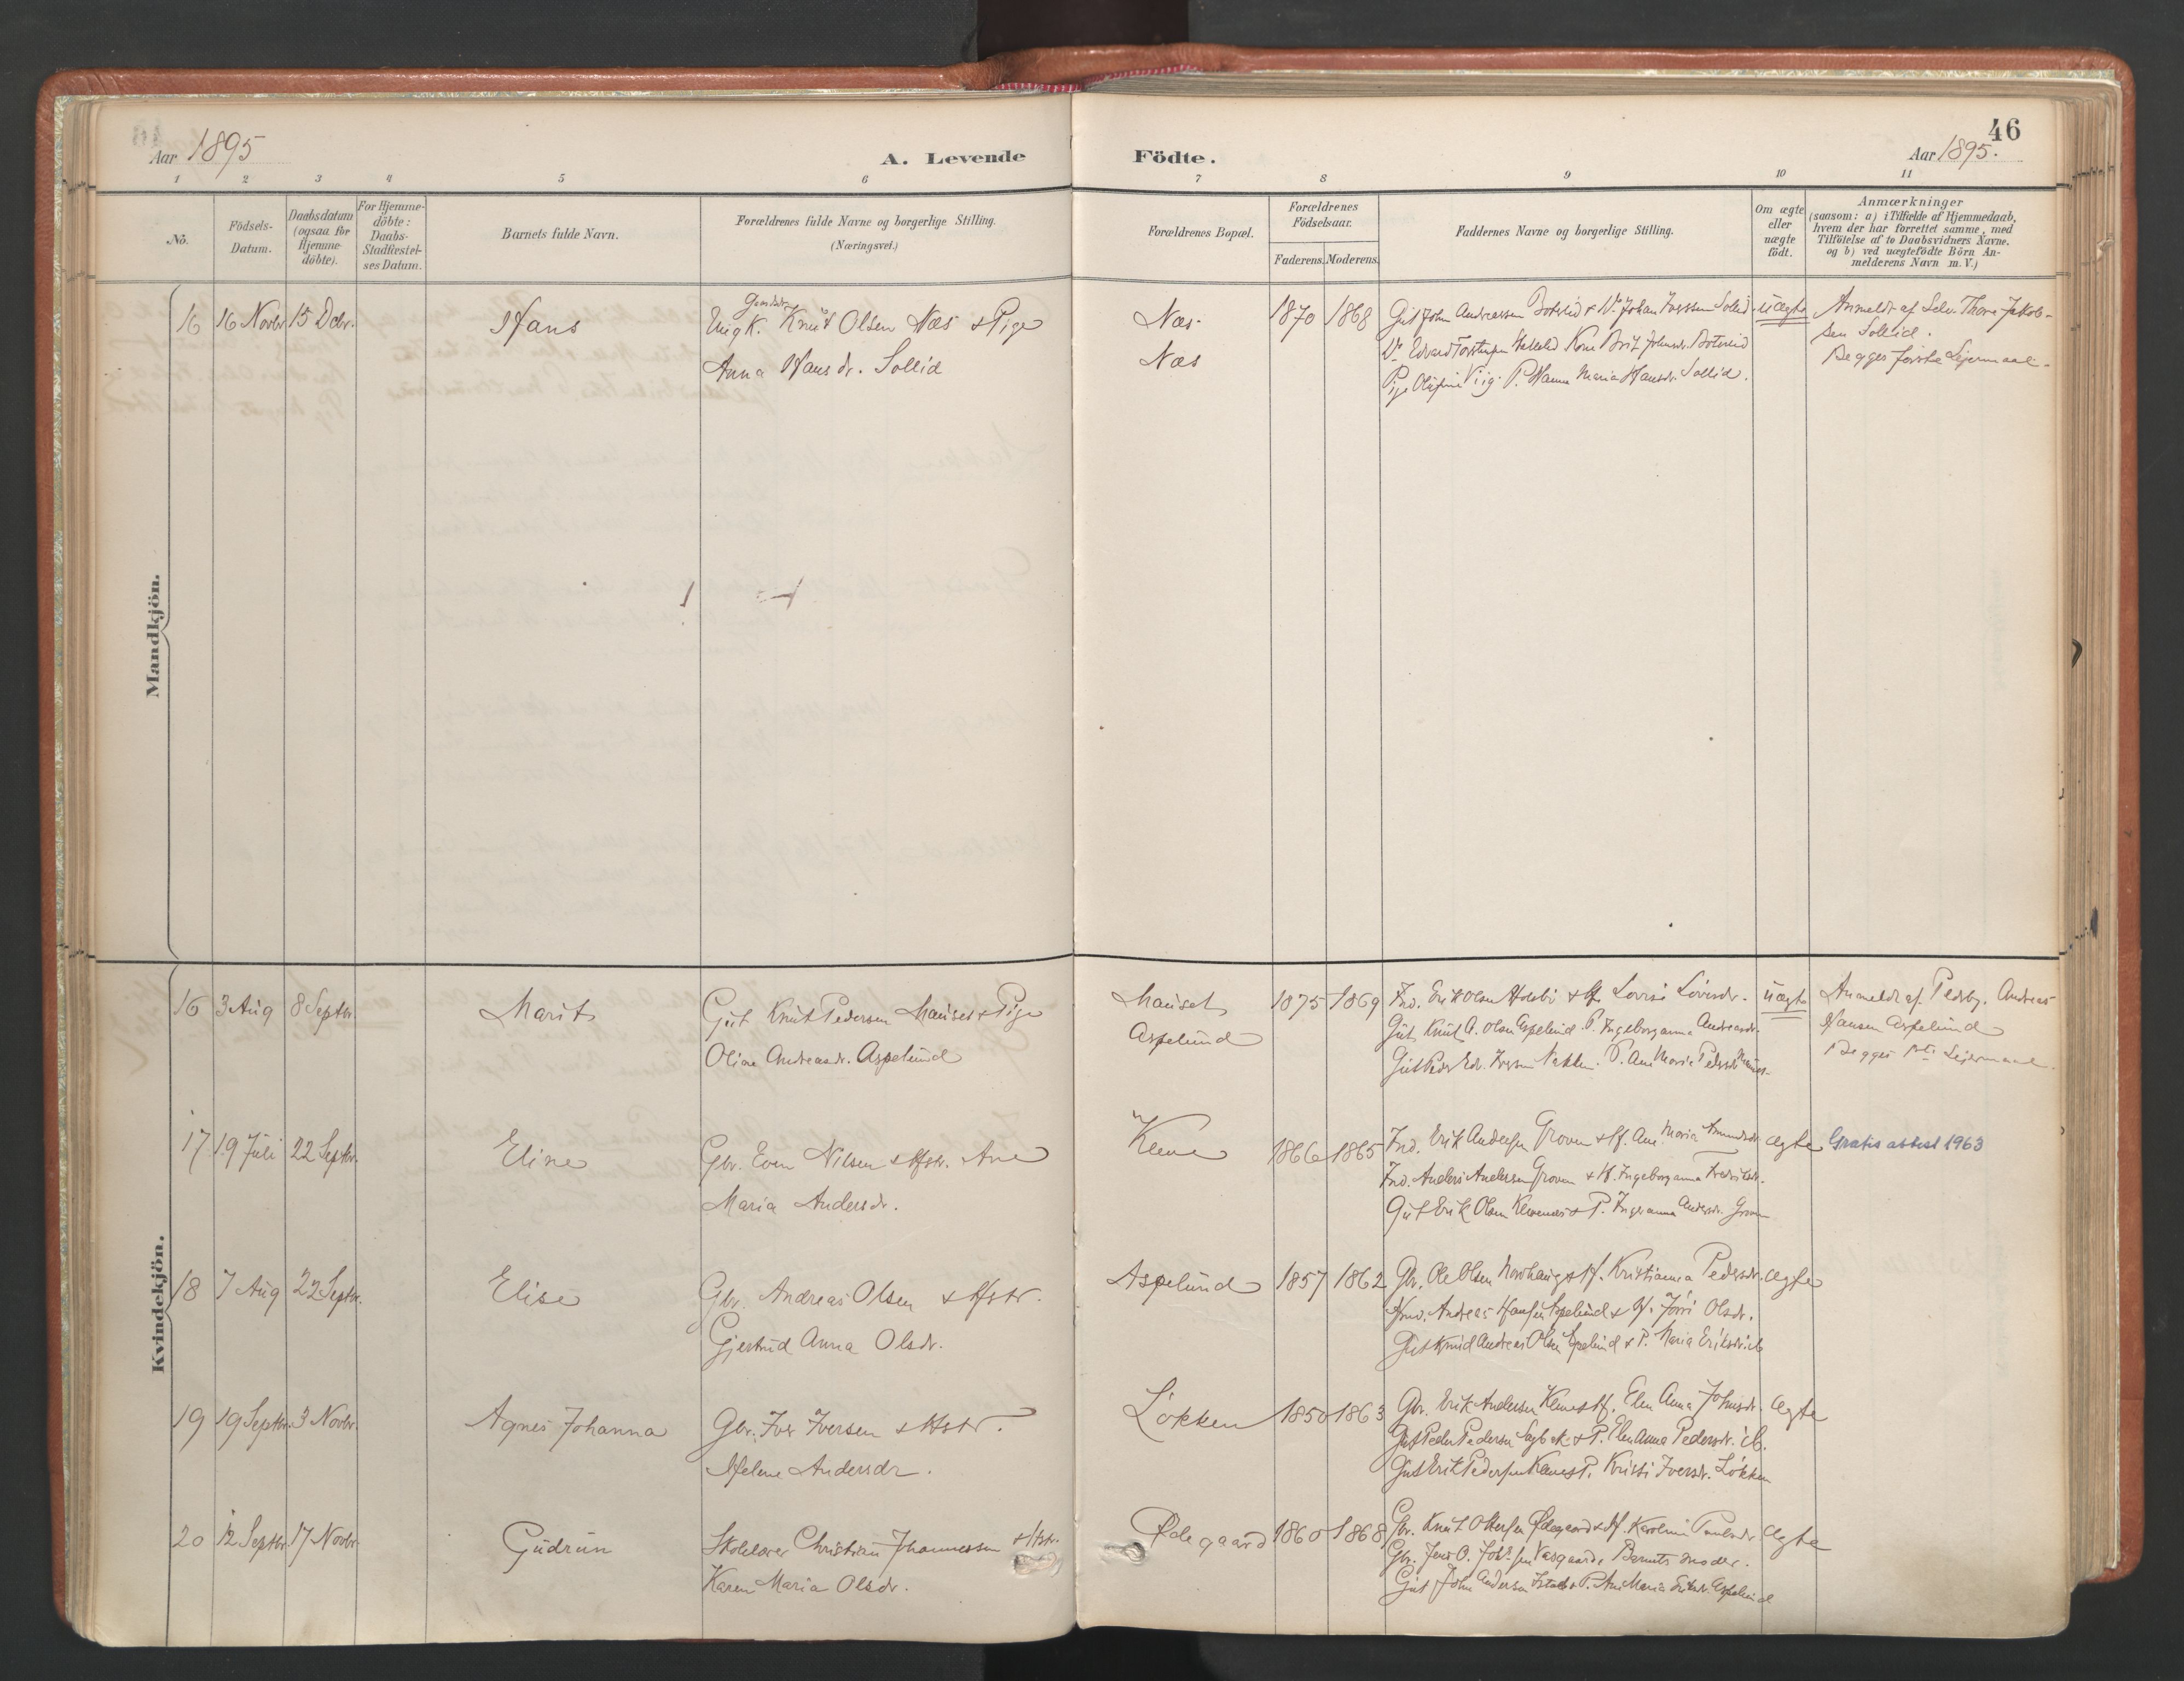 46
Aar 1895
A. Levende Födte.
Aar 1895.
1 2 3 4 5 6 7 8 9 10 11
No.
Födsels-Datum.
Daabsdatum (ogsaa for Hjemme-döbte).
For Hjemme-döbte: Daabs-Stadfæstel-ses Datum.
Barnets fulde Navn.
Forældrenes fulde Navne og borgerlige Stilling. (Næringsvei.)
Forældrenes Bopæl.
Forældrenes Födselsaar.
Faderens. Moderens.
Faddernes Navne og borgerlige Stilling.
Om ægte eller uægte födt.
Anmærkninger
(saasom: a) i Tilfælde af Hjemmedaab,
hvem der har forrettet samme, med
Tilföielse af to Daabsvidners Navne.
og b) ved uægtefödte Börn An-
melderens Navn m.V.)
Mandkjön.
16 16 Novbr 15 Decbr. Hans
Ungk. Knut Olsen Næs & Pige
Anna Hansdr. Sollid
Næs
Næs
1870 1868
Gut John Andreassen & Do Johan Sollid
Pige P. Hanna Maria Hansdr. Sollid.
uægte
Anmeldt af Selv. Thore Jakob-
sen Sollid.
Begges første Leiermaal.
Kvindekjön.
16 3 Aug 8 Septbr. Marit
Gut Knut Pedersen Mauset & Pige
Oline Andreasdr. Aspelund
Mauset
Aspelund
1875 1869
Ind. Erik Olsen
Gut Knut A. Olsen Aspelund. P. Ingeborganna Andreasdr.
P. Ane Maria Pedersdr
uægte
Anmeldt af Andreas
Hansen Aspelund
Begges 1ste Leiermaal.
17 19 Juli 22 Septbr. Eline
Gbr. Even Nilsen & Hstr. Ane
Maria Andersdr.
Kleve
1866 1865
Ind. Erik Andersen Groven & Hf. Ane Maria Amundsdr.
Ind. Anders Andersen Groven & H. Ingeborganna
Gut Erik Olsen & P. Ingeranna Andersdr. Groven
ægte
Gratis attest 1963
18 7 Aug 22 Septbr. Elise
Gbr. Andreas Olsen & Hstr.
Gjertrud Anna Olsdr.
Aspelund
1857 1862
Gbr. Ole Olsen & Hf. Kristianna Pedersdr.
Andreas Hansen Aspelund & Hf. Olsdr.
Gut Knud Andreas Olsen Aspelund & P. Maria Eriksdr. ib
ægte
19 19 Septbr. 3 Novbr. Agnes Johanna
Gbr. Iver Iversen & Hstr.
Helene Andersdr.
Løkken
1850 1863
Gbr. Erik Andersen Kleve & Hf. Elen Anna Johnsdr.
Gut Peder Pedersen & P. Elen Anna Pedersdr. ib.
Gut Erik Pedersen & P. Kristi Iversdr. Løkken
ægte
20 12 Septbr. 17 Novbr. Gudrun
Skolelærer Christian Johannessen & Hstr.
Karen Maria Olsdr.
Ødegaard
1860 1868
Gbr. Knut Ødegaard & Hf. Karoline
Gbr. Jens O. Barnets Moder.
Gut John Andersen & P. Ane Maria Eriksdr. Aspelund
ægte